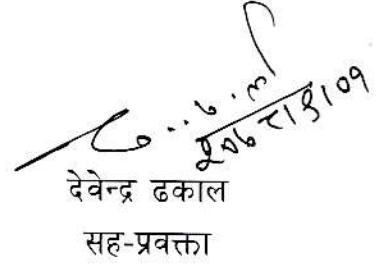 २०७८।९।०१
देवेन्द्र ढकाल
सह-प्रवक्ता